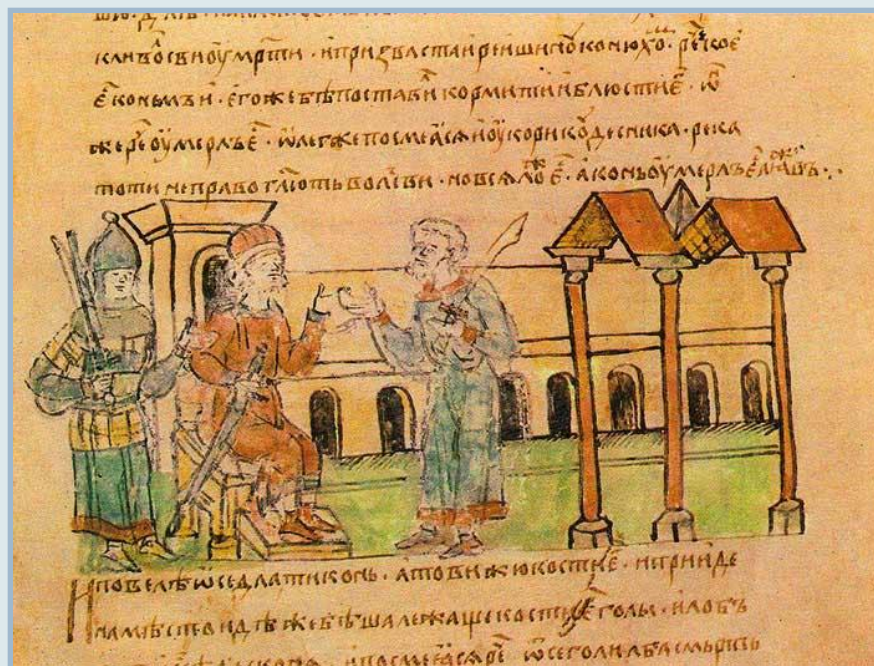 ипризвастарѣишинꙋконюхо҃ · ре҃ кое
е҃ коньмъи · егожебѣпоставил҃ кормитииблюстие҃ · ѡ҃
жере҃ оумерлъе҃ · ѡлегжепосмеꙗсѧиоукорикꙋдесника · река
тотинеправогл҃ютьволъсви · новсѧло҃ е҃ · аконьоумерлъе҃
Иповелѣѡседлатиконь · атовижюкостие҃ · иприиде
намѣстоидѣжебѣшалежащекостие҃голы · илобъ
ипосмеꙗсѧре҃ ѿсеголилбасмьрть